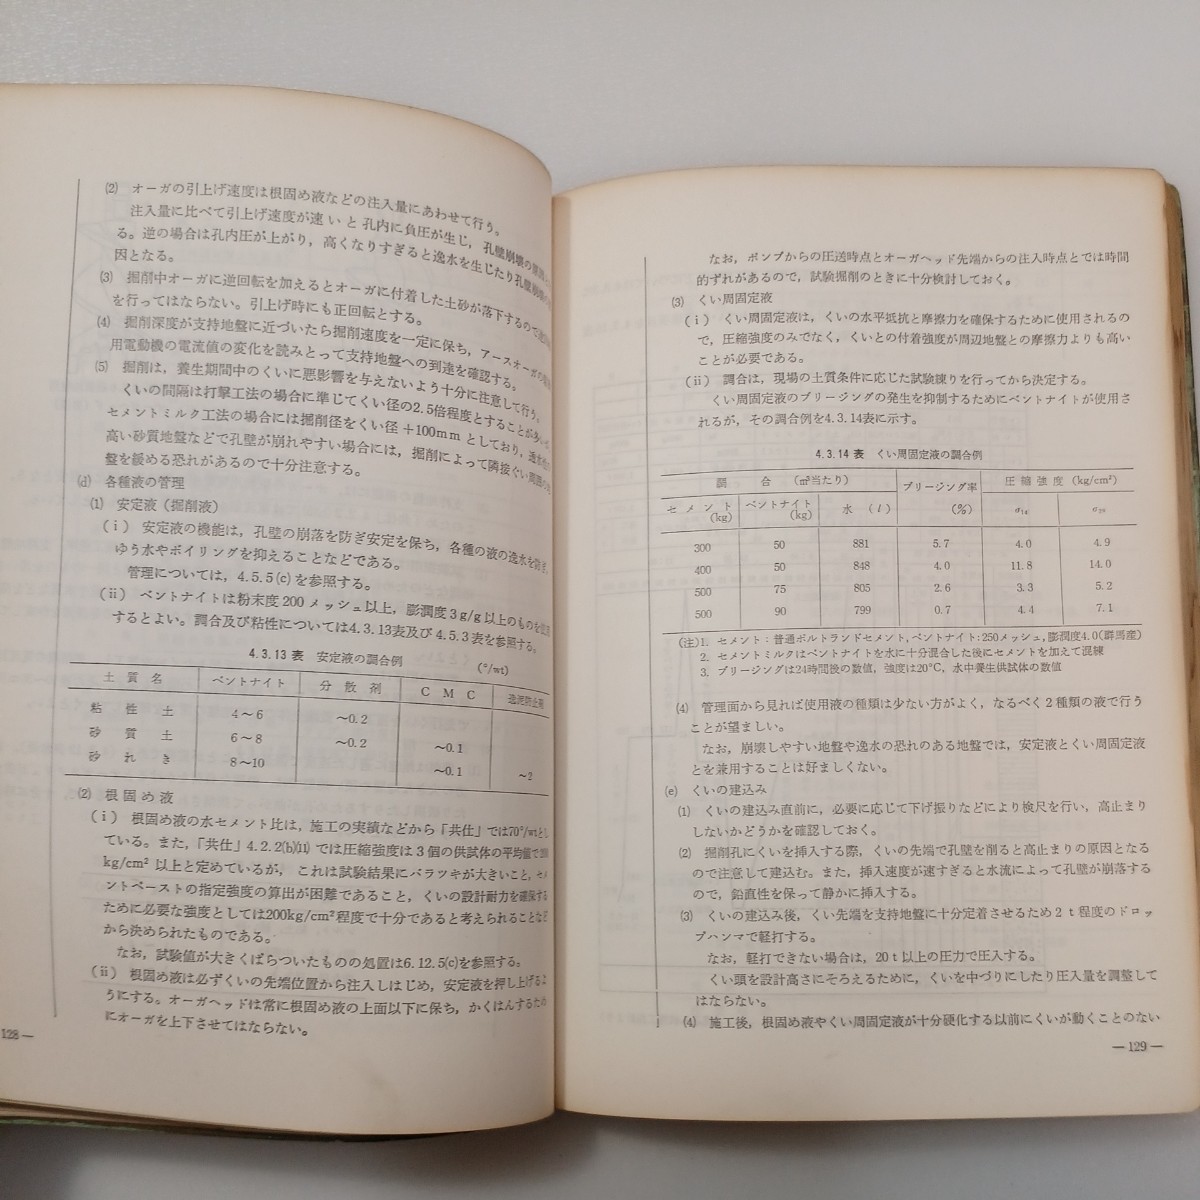 (2) オーガの引上げ速度は根固め液などの注入量にあわせて行う。
注入量に比べて引上げ速度が速いと孔内に負圧が生じ,孔壁崩壊の原因と
る。逆の場合は孔内圧が上がり,高くなりすぎると逸水を生じたり孔壁崩壊の
因となる。
(3) 掘削中オーガに逆回転を加えるとオーガに付着した土砂が落下するので
を行ってはならない。引上げ時にも正回転とする。
(4) 掘削深度が支持地盤に近づいたら掘削速度を一定に保ち,アースオーガの
用電動機の電流値の変化を読みとって支持地盤への到達を確認する。
(5) 掘削は,養生期間中のくいに悪影響を与えないよう十分に注意して行う。
くいの間隔は打撃工法の場合に準じてくい径の2.5倍程度とすることが多い
セメントミルク工法の場合には掘削径をくい径+100mmとしており,
高い砂質地盤などで孔壁が崩れやすい場合には,掘削によって隣接ぐい周囲の
盤を緩める恐れがあるので十分注意する。
(d) 各種液の管理
(1) 安定液(掘削液)
(ⅰ) 安定液の機能は,孔壁の崩落を防ぎ安定を保ち,各種の液の逸水を防ぎ,
ゆう水やボイリングを抑えることなどである。
管理については,4.5.5(c)を参照する。
(ⅱ) ベントナイトは粉末度200メッシュ以上,膨潤度3g/g以上のものを
するとよい。調合及び粘性については4.3.13表及び4.5.3表を参照する。
4.3.13表 安定液の調合例 (%/wt)
土質名 ベントナイト 分散剤 CMC 逸泥防止剤
粘性土 4〜6 〜0.2
砂質土 6〜8 〜0.2 〜0.1
砂れき 8〜10 〜0.1 〜2
(2) 根固め液
(ⅰ) 根固め液の水セメント比は,施工の実績などから「共仕」では70%/wtとし
ている。また,「共仕」4.2.2(b)(11)では圧縮強度は3個の供試体の平均値で
kg/cm²以上と定めているが,これは試験結果にバラツキが大きいこと,セメ
ントペーストの指定強度の算出が困難であること,くいの設計耐力を確保する
ために必要な強度としては200kg/cm²程度で十分であると考えられることなど
から決められたものである。
なお,試験値が大きくばらついたものの処置は6.12.5(c)を参照する。
(ⅱ) 根固め液は必ずくいの先端位置から注入しはじめ,安定液を押し上げるよ
うにする。オーガヘッドは常に根固め液の上面以下に保ち,かくはんするため
にオーガを上下させてはならない。
128—
なお,ポンプからの圧送時点とオーガヘッド先端からの注入時点とでは時間
的ずれがあるので,試験掘削のときに十分検討しておく。
(3) くい周固定液
(ⅰ) くい周固定液は,くいの水平抵抗と摩擦力を確保するために使用されるの
で,圧縮強度のみでなく,くいとの付着強度が周辺地盤との摩擦力よりも高い
ことが必要である。
(ⅱ) 調合は,現場の土質条件に応じた試験練りを行ってから決定する。
くい周固定液のブリージングの発生を抑制するためにベントナイトが使用さ
れるが,その調合例を4.3.14表に示す。
4.3.14表 くい周固定液の調合例
調合 (m³当たり) ブリージング率 (%) 圧縮強度 (kg/cm²)
セメント (kg) ベントナイト (kg) 水 (l) σ₁₄ σ₂₈
300 50 881 5.7 4.0 4.9
400 50 848 4.0 11.8 14.0
500 75 805 2.6 3.3 5.2
500 90 799 0.7 4.4 7.1
(注)1. セメント:普通ポルトランドセメント,ベントナイト:250メッシュ,膨潤度4.0(群馬産)
2. セメントミルクはベントナイトを水に十分混合した後にセメントを加えて混練
3. ブリージングは24時間後の数値,強度は20°C,水中養生供試体の数値
(4) 管理面から見れば使用液の種類は少ない方がよく,なるべく2種類の液で行う
ことが望ましい。
なお,崩壊しやすい地盤や逸水の恐れのある地盤では,安定液とくい周固定液
とを兼用することは好ましくない。
(e) くいの建込み
(1) くいの建込み直前に,必要に応じて下げ振りなどにより検尺を行い,高止まり
しないかどうかを確認しておく。
(2) 掘削孔にくいを挿入する際,くいの先端で孔壁を削ると高止まりの原因となる
ので注意して建込む。また,挿入速度が速すぎると水流によって孔壁が崩落する
ので,鉛直性を保って静かに挿入する。
(3) くいの建込み後,くい先端を支持地盤に十分定着させるため2t程度のドロッ
プハンマで軽打する。
なお,軽打できない場合は,20t以上の圧力で圧入する。
くい頭を設計高さにそろえるために,くいを中づりにしたり圧入量を調整して
はならない。
(4) 施工後,根固め液やくい周固定液が十分硬化する以前にくいが動くことのない
—129—